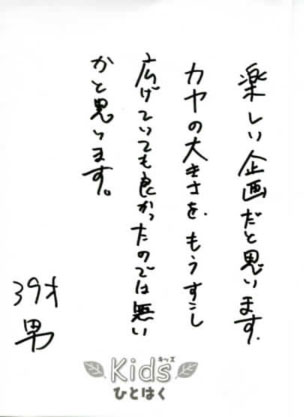 楽しい企画だと思います.
カヤの大きさを、もうすこし
広げていても良かったのでは無い
かと思います。
39才
男
キッズ
Kids
ひとはく